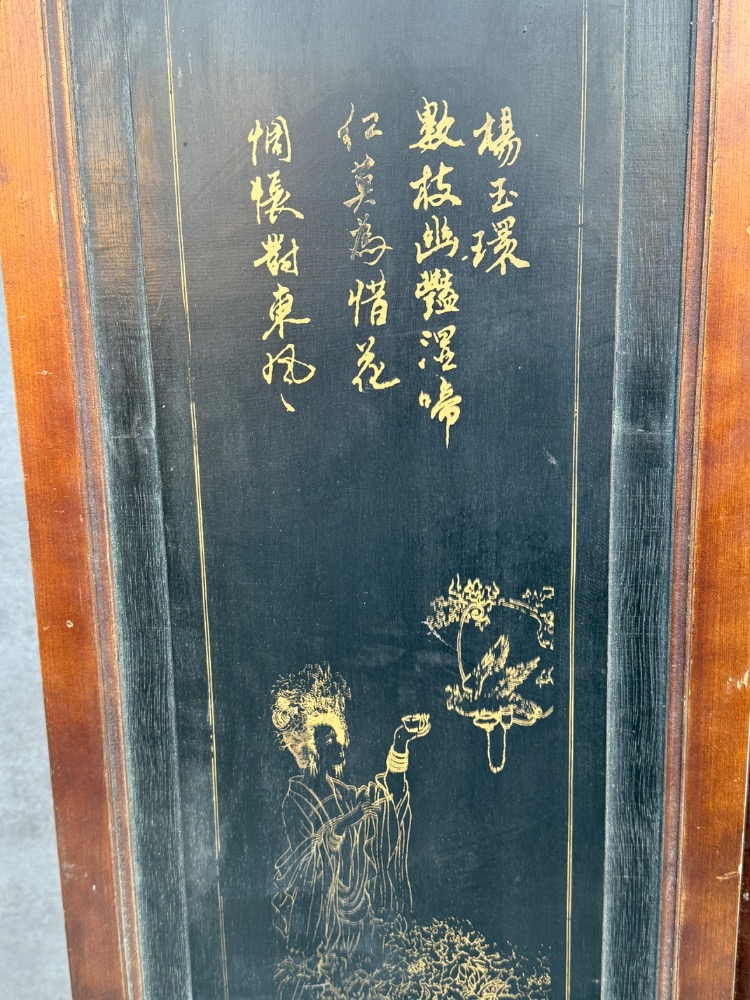 楊玉環
數枝幽艷溼啼
红莫為惜花
惆悵對東風